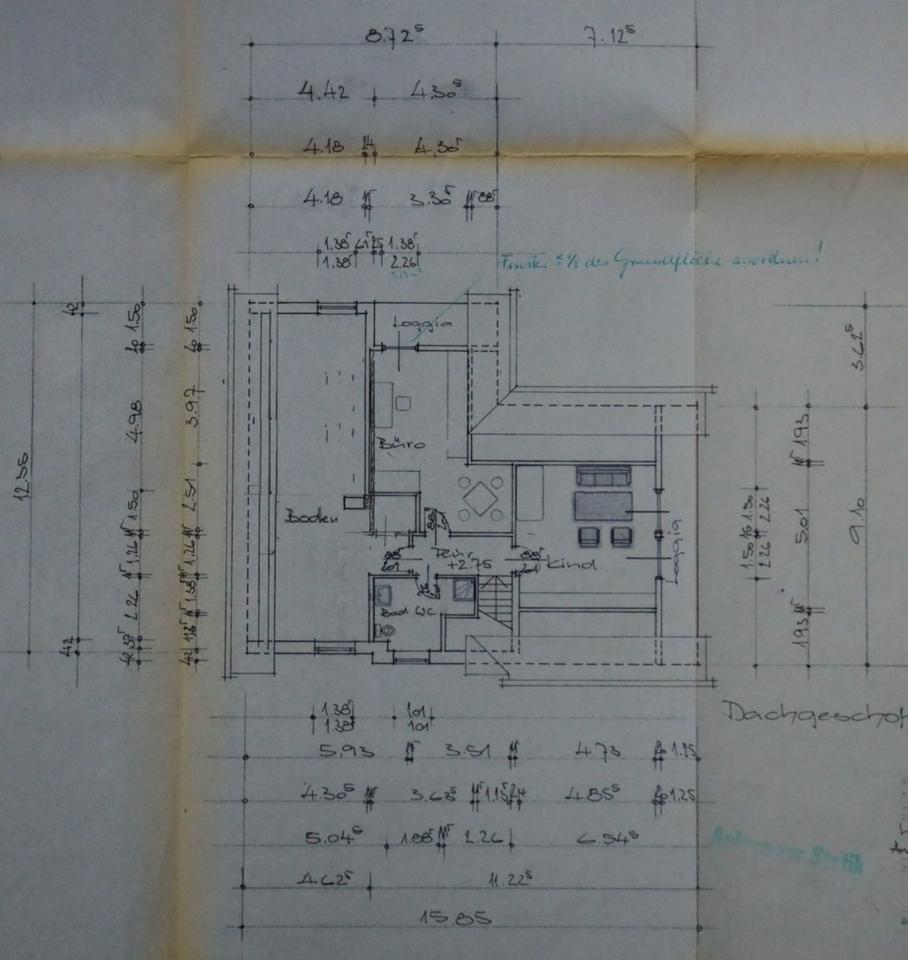 8.72⁵ 7.12⁵
4.42 4.30⁵
4.18 24 4,30⁵
4.18 11⁵ 3.30⁵ 11⁵ 88⁵
1.38⁵ 1.38⁵
1.38⁵ 2.26
Fenster der Grundfläche anordnen!
42
1.50
1.50
3.62⁵
Loggia
4.98
3.97
1.93
Büro
12.55
1.50
2.51
1.50 2.26
5.01
9.10
Boden
88⁵
2.01
1.26
1.26
+2.75
88⁵
2.01
Kind
Loggia
1.50 2.26
2.26
1.38⁵
Bad WC
1.93
42
42
42
1.38⁵ 1.01
1.38⁵ 1.01
Dachgeschoß
5,93 11⁵ 3.51 11⁵ 4.73 1.25
4.30⁵ 11⁵ 3.63⁵ 11⁵ 1.15 24 4.85⁵ 20 1.25
5.04⁵ 1.88⁵ 11⁵ 2.26 6.54⁵
Anlage zur Statik
4.62⁵ 11.22⁵
15.85